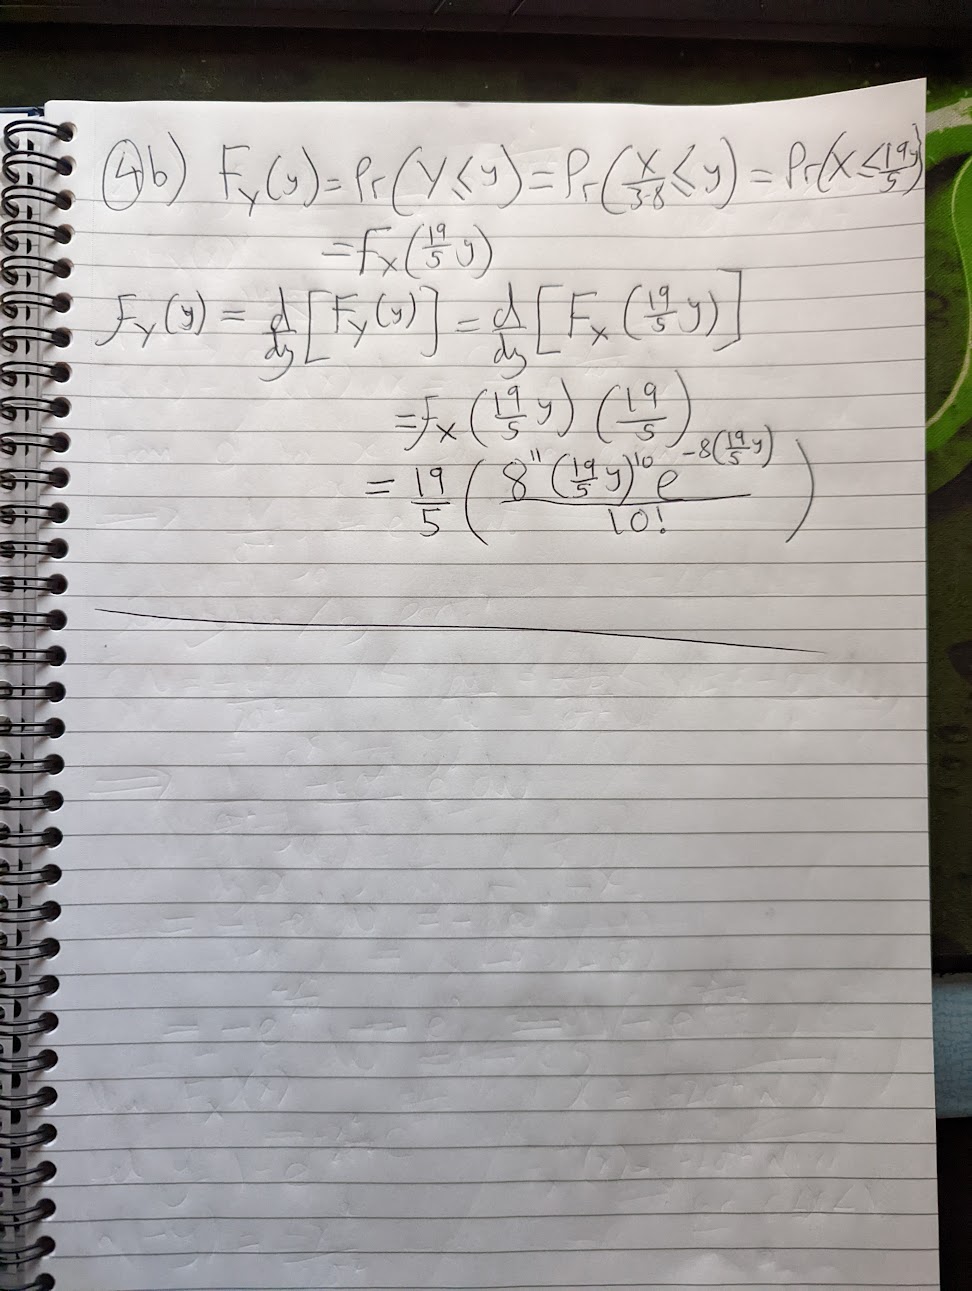 ④b) F_Y(y) = Pr(Y ≤ y) = Pr(X/3.8 ≤ y) = Pr(X ≤ 19/5 y)
= F_X(19/5 y)
f_Y(y) = d/dy [F_Y(y)] = d/dy [F_X(19/5 y)]
= f_X(19/5 y) (19/5)
= 19/5 (8^11 (19/5 y)^10 e^-8(19/5 y) / 10!)